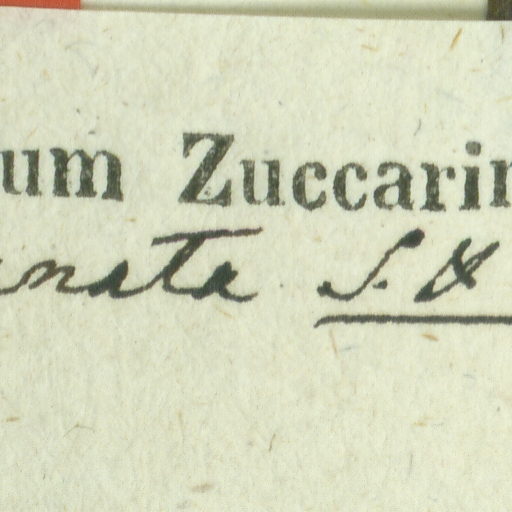 um Zuccarin
nata S. &